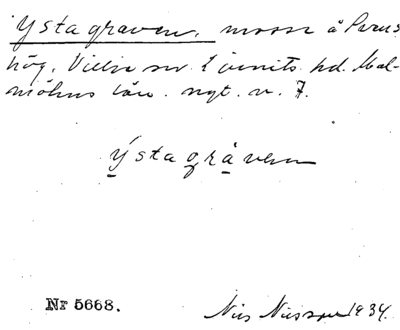 Ystagraven, mosse å Prins
hög, Villie sn. Ljunits hd. Mal-
möhus län. nyt. v. 7.
ýstagråven
Nr 5668.
Nils Nilsson 1934.